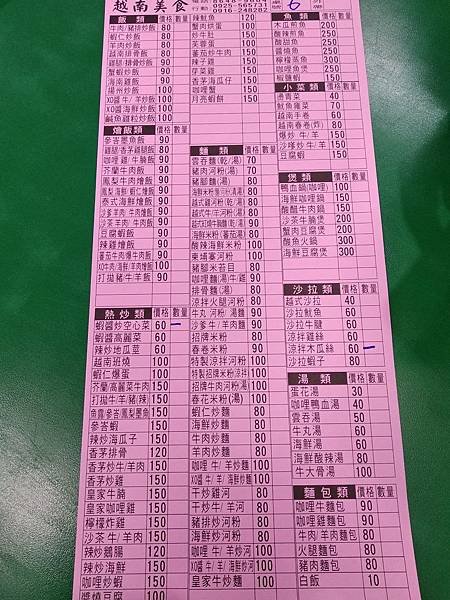 越南美食
0925-565731
0916-248282
6
飯類 價格 數量
牛肉/豬排炒飯 80
蝦仁炒飯 80
羊肉炒飯 80
越南排骨飯 80
雞腿/排骨炒飯 90
蟹蝦炒飯 90
海南雞飯 90
揚州炒飯 90
XO醬 牛/羊炒飯 100
XO醬海鮮炒飯 100
鹹魚雞粒炒飯 100
燴飯類 價格 數量
參峇墨魚飯 90
雞腿/香茅雞腿飯 80
咖哩雞/牛腩飯 90
芥蘭牛肉飯 90
鳳梨/海鮮/蝦仁燴飯 90
泰式海鮮燴飯 90
沙爹羊肉/牛肉飯 90
沙茶羊肉/牛肉飯 90
豆腐蝦飯 90
辣雞燴飯 90
蕃茄牛肉爆牛肉飯 90
XO牛肉/海鮮/羊肉燴飯 100
打拋豬/牛/羊飯 90
熱炒類 價格 數量
蝦醬炒空心菜 60
蝦醬高麗菜 60
辣炒地瓜莖 60
越南班燴 100
蝦仁爆蛋 100
芥蘭/高麗菜牛肉 150
打拋牛/羊/豬(辣) 150
魚露/參峇/鳳梨墨魚 150
參峇蝦 150
辣炒海瓜子 150
香茅排骨 120
香茅炒牛/羊肉 150
香茅炒雞 150
皇家牛腩 150
皇家咖哩雞 150
檸檬炸雞 150
沙茶牛/羊肉 150
辣炒鵝腸 120
辣炒海鮮 150
咖哩炒蝦 150
醬燒豆腐
辣魷魚 120
蟹肉烘蛋 100
炒牛肚 150
芙蓉蛋 100
蕃茄炒牛肉 150
辣子雞 150
芽菜雞 150
香茅海瓜子 150
咖哩蟹 150
月亮蝦餅 150
麵類 價格 數量
雲吞麵(乾/湯) 70
豬肉河粉(湯) 70
豬腳麵(湯) 80
80
越式雞河粉(乾/湯) 80
越式牛/羊河粉(湯) 80
80
海鮮米粉(蕃茄湯) 80
酸辣海鮮米粉 80
柬埔寨河粉 80
豬腳米苔目 80
咖哩雞/牛腩(湯) 90
排骨麵(湯) 80
涼拌火腿河粉 80
牛丸河粉/湯麵 80
沙爹牛/羊炒麵 80
招牌米粉 80
春卷米粉 90
特製涼拌河粉 100
特製招牌米粉涼拌 100
招牌牛肉河粉(湯) 100
春花米粉(湯) 100
蝦仁炒麵 80
海鮮炒麵 80
牛肉炒麵 80
羊肉炒麵 80
咖哩牛/羊炒麵 100
XO醬牛/羊/海鮮炒麵 100
干炒雞河 80
干炒牛/羊河 80
豬排炒河粉 80
海鮮炒河粉 80
咖哩牛/羊炒河 100
XO醬牛/羊/海鮮炒河 100
皇家牛炒麵 100
魚類 價格 數量
木瓜煎魚 200
酸辣煎魚 200
酸甜魚 200
醬燒魚 200
檸檬蒸魚 200
咖哩魚煲 200
椒鹽蝦 150
小菜類 價格 數量
燙青菜 40
魷魚蕹菜 70
越南手卷 60
越南春卷(炸) 80
爆炒牛/羊 150
沙嗲炒牛/羊 150
豆腐蝦 150
煲類 價格 數量
鴨血鍋(咖哩) 100
海鮮咖哩鍋 150
酸醋牛肉鍋 150
沙茶牛腩煲 200
蟹肉豆腐煲 200
酸魚火鍋 300
海鮮豆腐煲 300
沙拉類 價格 數量
越式沙拉 40
沙拉魷魚 60
沙拉牛腱 60
涼拌雞絲 60
涼拌木瓜絲 60
沙拉蝦子 80
湯類 價格 數量
蛋花湯 30
咖哩鴨血湯 40
雲吞湯 50
牛丸湯 50
海鮮湯 60
海鮮酸辣湯 80
牛大骨湯 100
麵包類 價格 數量
咖哩牛麵包 80
咖哩雞麵包 80
牛肉/羊肉麵包 80
火腿麵包 80
豬肉麵包 80
白飯 10